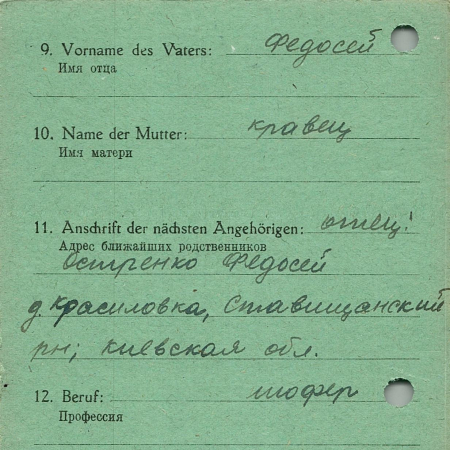 9. Vorname des Vaters: Федосей
Имя отца
10. Name der Mutter: кравец
Имя матери
11. Anschrift der nächsten Angehörigen: отец:
Адрес ближайших родственников
Остренко Федосей
д. Красиловка, Ставищанский
рн; Киевская обл.
12. Beruf: шофер
Профессия